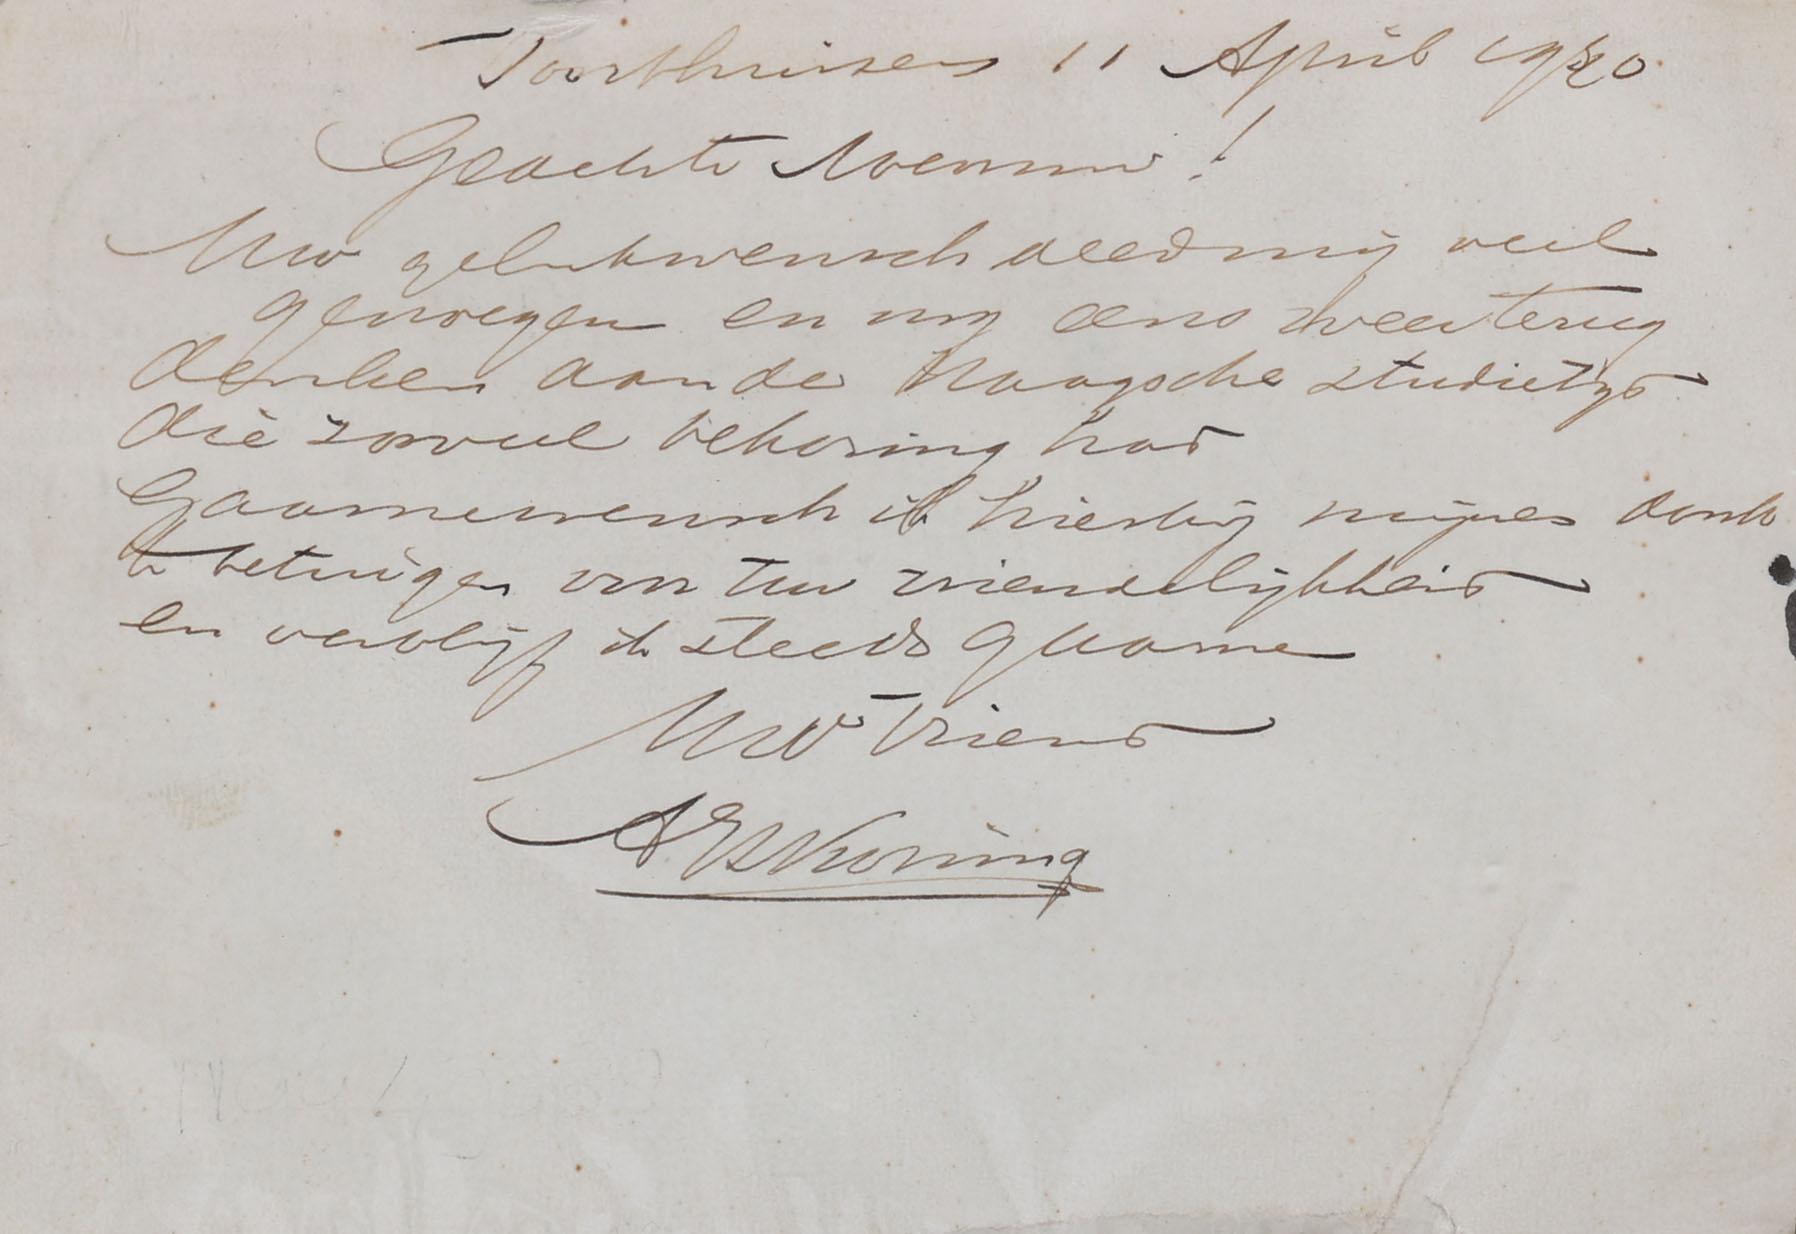 Voorthuizen 11 April 1920
Geachte Mevrouw!
Uw gelukwensch deed mij veel
genoegen en mij eens weer terug
denken aan de Haagsche studietijd
die zooveel bekoring had
Gaarne wensch ik hierbij mijnen dank
te betuigen voor Uw vriendelijkheid
en verblijf ik steeds gaarne
Uw Vriend
A Koning